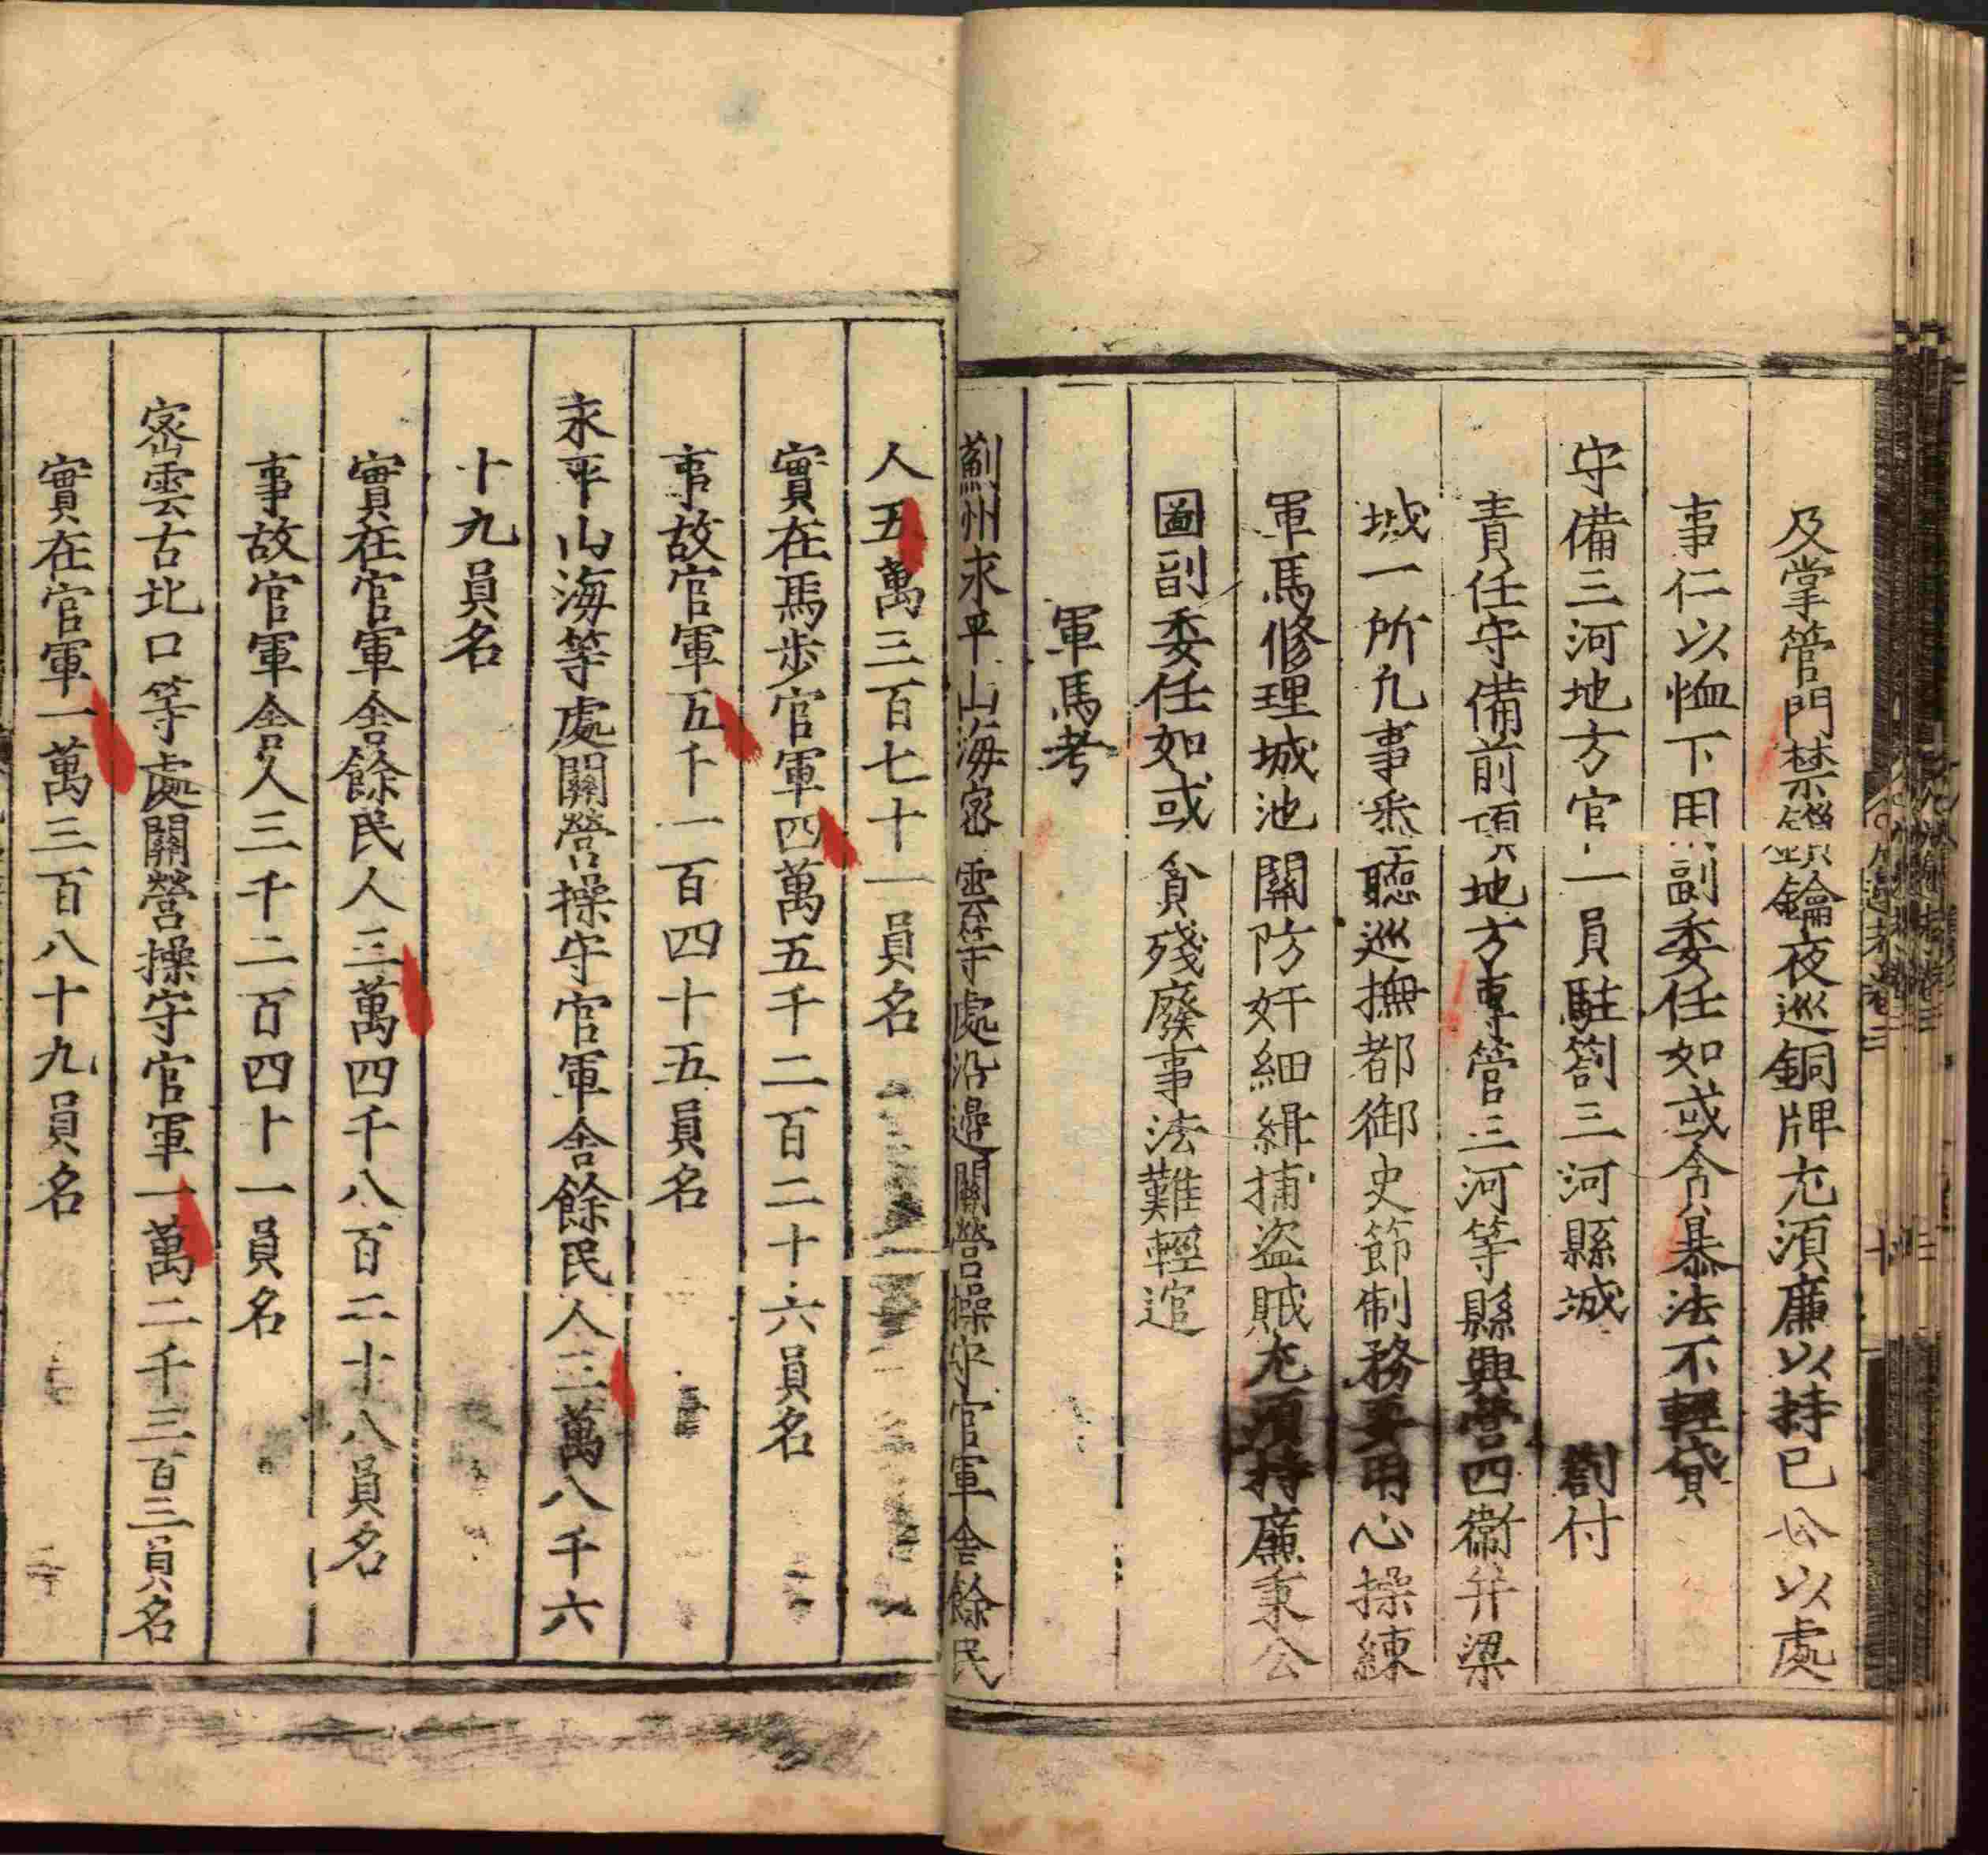 及掌管門禁鎖鑰夜巡銅牌尤須廉以持己公以處
事仁以恤下用副委任如或貪暴法不輕貸
守備三河地方官一員駐劄三河縣城劄付
責任守備前項地方專管三河等縣興營四衛并梁
城一所凡事悉聽巡撫都御史節制務要用心操練
軍馬修理城池關防奸細緝捕盜賊尤須持廉秉公
圖副委任如或貪殘廢事法難輕逭
軍馬考
薊州永平山海密雲等處沿邊關營操守官軍舍餘民
人五萬三百七十一員名
實在馬步官軍四萬五千二百二十六員名
事故官軍五千一百四十五員名
永平山海等處關營操守官軍舍餘民人三萬八千六
十九員名
實在官軍舍餘民人三萬四千八百二十八員名
事故官軍舍人三千二百四十一員名
密雲古北口等處關營操守官軍一萬二千三百三員名
實在官軍一萬三百八十九員名